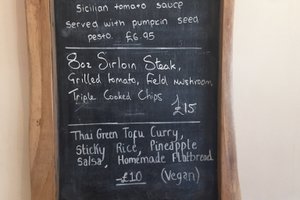 Sicilian tomato sauce
served with pumpcin seed
pesto. £6.95
8oz Sirloin Steak,
Grilled tomato, field mushroom,
Triple Cooked Chips
£15
Thai Green Tofu Curry,
Sticky Rice, Pineapple
Salsa, Homemade Flatbread
£10 (Vegan)